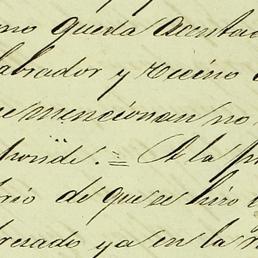 mo queda acentad
labrador y vecino d
se mencionan no
ponde. = A la p
rio de que se hizo
resado ya en la